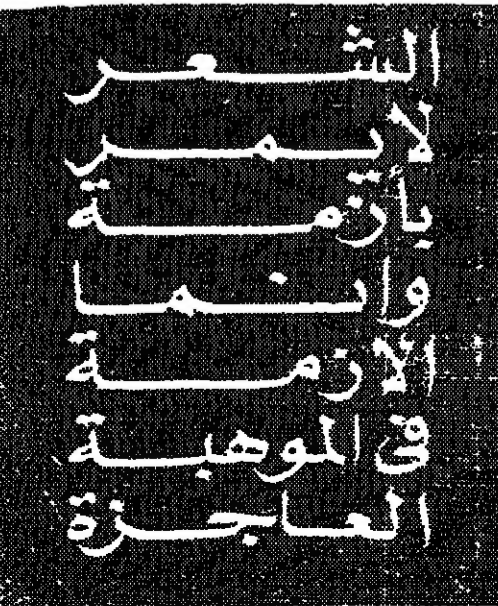 الشعر
لا يمر
بأزمة
وانما
الازمة
في الموهبة
العاجزة